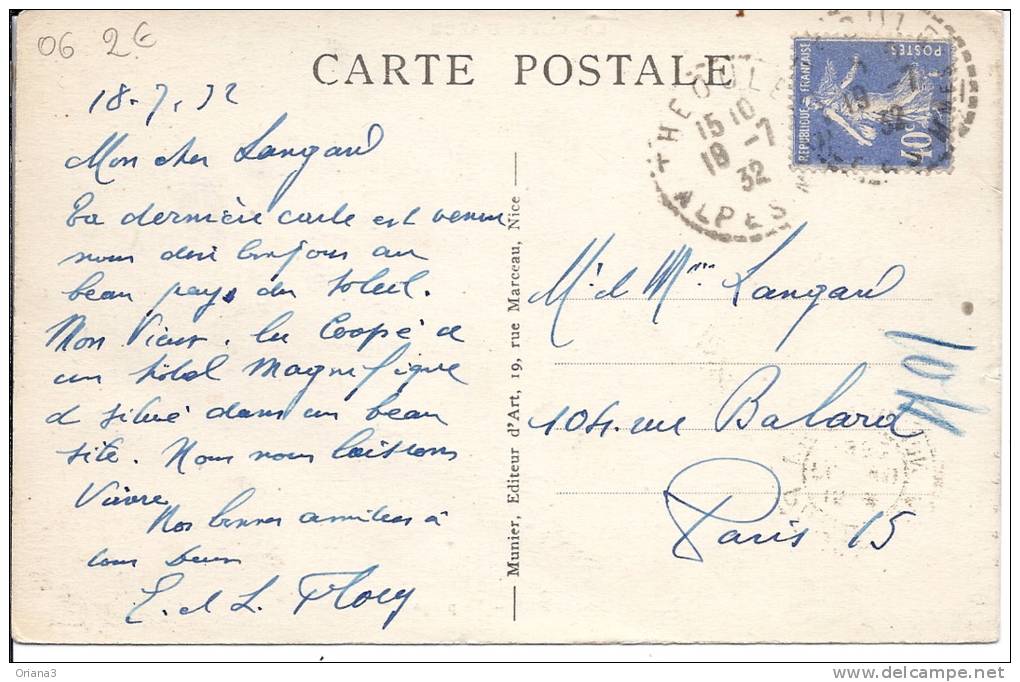 06 2€
CARTE POSTALE
18.7.32
Mon cher Langard
Ta dernière carte est venue
nous
beau pays du Soleil.
Mon Vieux, le Coopé a
un hôtel Magnifique
et situé dans un beau
site. Nous nous laissons
Vivre
Nos bonnes amitiés à
tous deux
E. et L. Flory
Munier, Editeur d'Art, 19, rue Marceau, Nice
THEOULE
15 10
19 -7
32
ALPES Mmes
REPUBLIQUE FRANÇAISE
POSTES
40c
19 -7
32
Mr. et Mme Langard
104. rue Balard
Paris 15
1404
Oriana3
www.delcampe.net